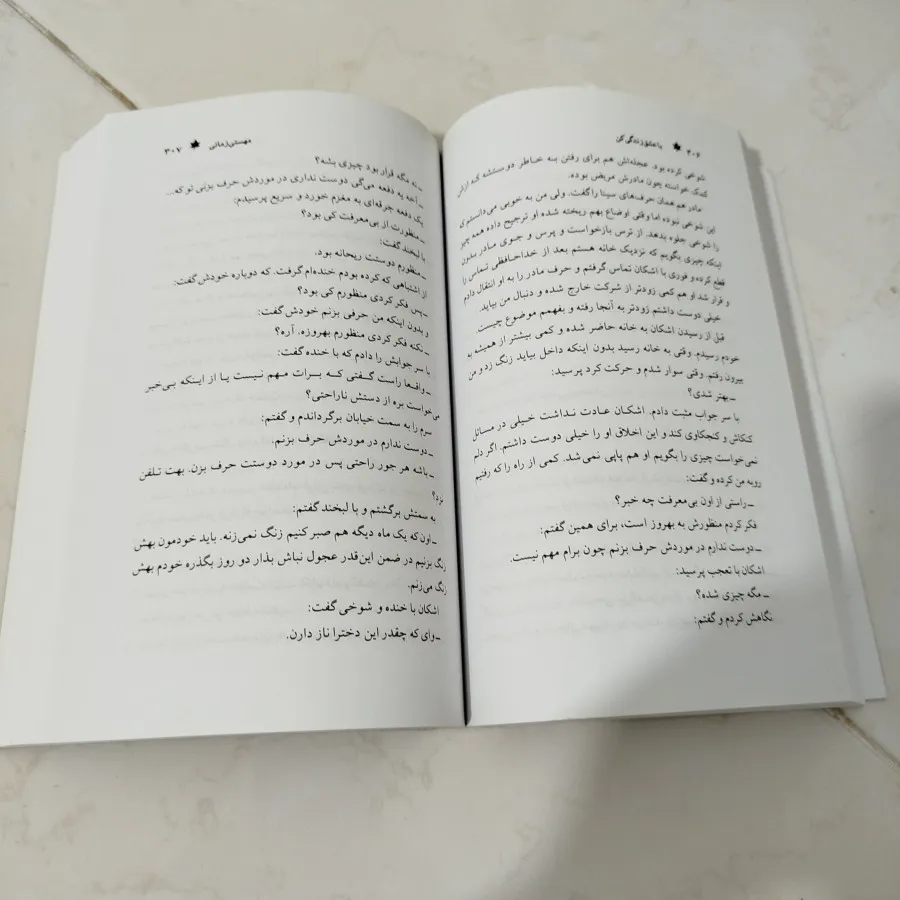 ۳۰۶ ★ با عشق زندگی کن
شوخی کرده بود. عجله‌اش هم برای رفتن به خاطر دوستشه که ازش
کمک خواسته چون مادرش مریض بوده.
مادر هم همان حرف‌های سینا را گفت. ولی من به خوبی می‌دانستم که
این شوخی نبوده اما وقتی اوضاع بهم ریخته شده او ترجیح داده همه چیز
را شوخی جلوه بدهد. از ترس بازخواست و پرس و جوی مادر بدون
اینکه چیزی بگویم که نزدیک خانه هستم بعد از خداحافظی تماس را
قطع کرده و فوری با اشکان تماس گرفتم و حرف مادر را به او انتقال دادم
و قرار شد او هم کمی زودتر از شرکت خارج شده و دنبال من بیاید.
خیلی دوست داشتم زودتر به آنجا رفته و بفهمم موضوع چیست.
قبل از رسیدن اشکان به خانه حاضر شده و کمی بیشتر از همیشه به
خودم رسیدم. وقتی به خانه رسید بدون اینکه داخل بیاید زنگ زد و من
بیرون رفتم. وقتی سوار شدم و حرکت کرد پرسید:
ـ بهتر شدی؟
با سر جواب مثبت دادم. اشکان عادت نداشت خیلی در مسائل
کنکاش و کنجکاوی کند و این اخلاق او را خیلی دوست داشتم. اگر دلم
نمی‌خواست چیزی را بگویم او هم پاپی نمی‌شد. کمی از راه را که رفتیم
رو به من کرده و گفت:
ـ راستی از اون بی‌معرفت چه خبر؟
فکر کردم منظورش به بهروز است، برای همین گفتم:
ـ دوست ندارم در موردش حرف بزنم چون برام مهم نیست.
اشکان با تعجب پرسید:
ـ مگه چیزی شده؟
نگاهش کردم و گفتم:
مهستی زمانی ★ ۳۰۷
ـ نه مگه قرار بود چیزی بشه؟
ـ آخه یه دفعه می‌گی دوست نداری در موردش حرف بزنی تو که...
یک دفعه جرقه‌ای به مغزم خورد و سریع پرسیدم:
ـ منظورت از بی‌معرفت کی بود؟
با لبخند گفت:
ـ منظورم دوستت ریحانه بود.
از اشتباهی که کرده بودم خنده‌ام گرفت. که دوباره خودش گفت:
ـ پس فکر کردی منظورم کی بود؟
و بدون اینکه من حرفی بزنم خودش گفت:
ـ نکنه فکر کردی منظورم بهروزه. آره؟
با سر جوابش را دادم که با خنده گفت:
ـ واقعا راست گفتی که برات مهم نیست یا از اینکه بی‌خبر
می‌خواست بره از دستش ناراحتی؟
سرم را به سمت خیابان برگرداندم و گفتم:
ـ دوست ندارم در موردش حرف بزنم.
ـ باشه هر جور راحتی پس در مورد دوستت حرف بزن. بهت تلفن
نزد؟
به سمتش برگشتم و با لبخند گفتم:
ـ اون که یک ماه دیگه هم صبر کنیم زنگ نمی‌زنه. باید خودمون بهش
زنگ بزنیم در ضمن این‌قدر عجول نباش بذار دو روز بگذره خودم بهش
زنگ می‌زنم.
اشکان با خنده و شوخی گفت:
ـ وای که چقدر این دخترا ناز دارن.